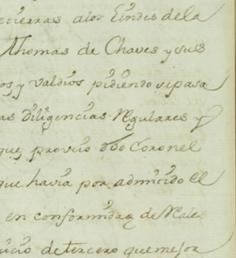 tierras a los Yndis de la
Thomas de Chaves y sus
os y valdios pidiendo se pasa
as Diligencias regulares y
que proveio dho Coronel
que havia por admitido el
en conformidaz de Rales
uicio de tercero que mejor